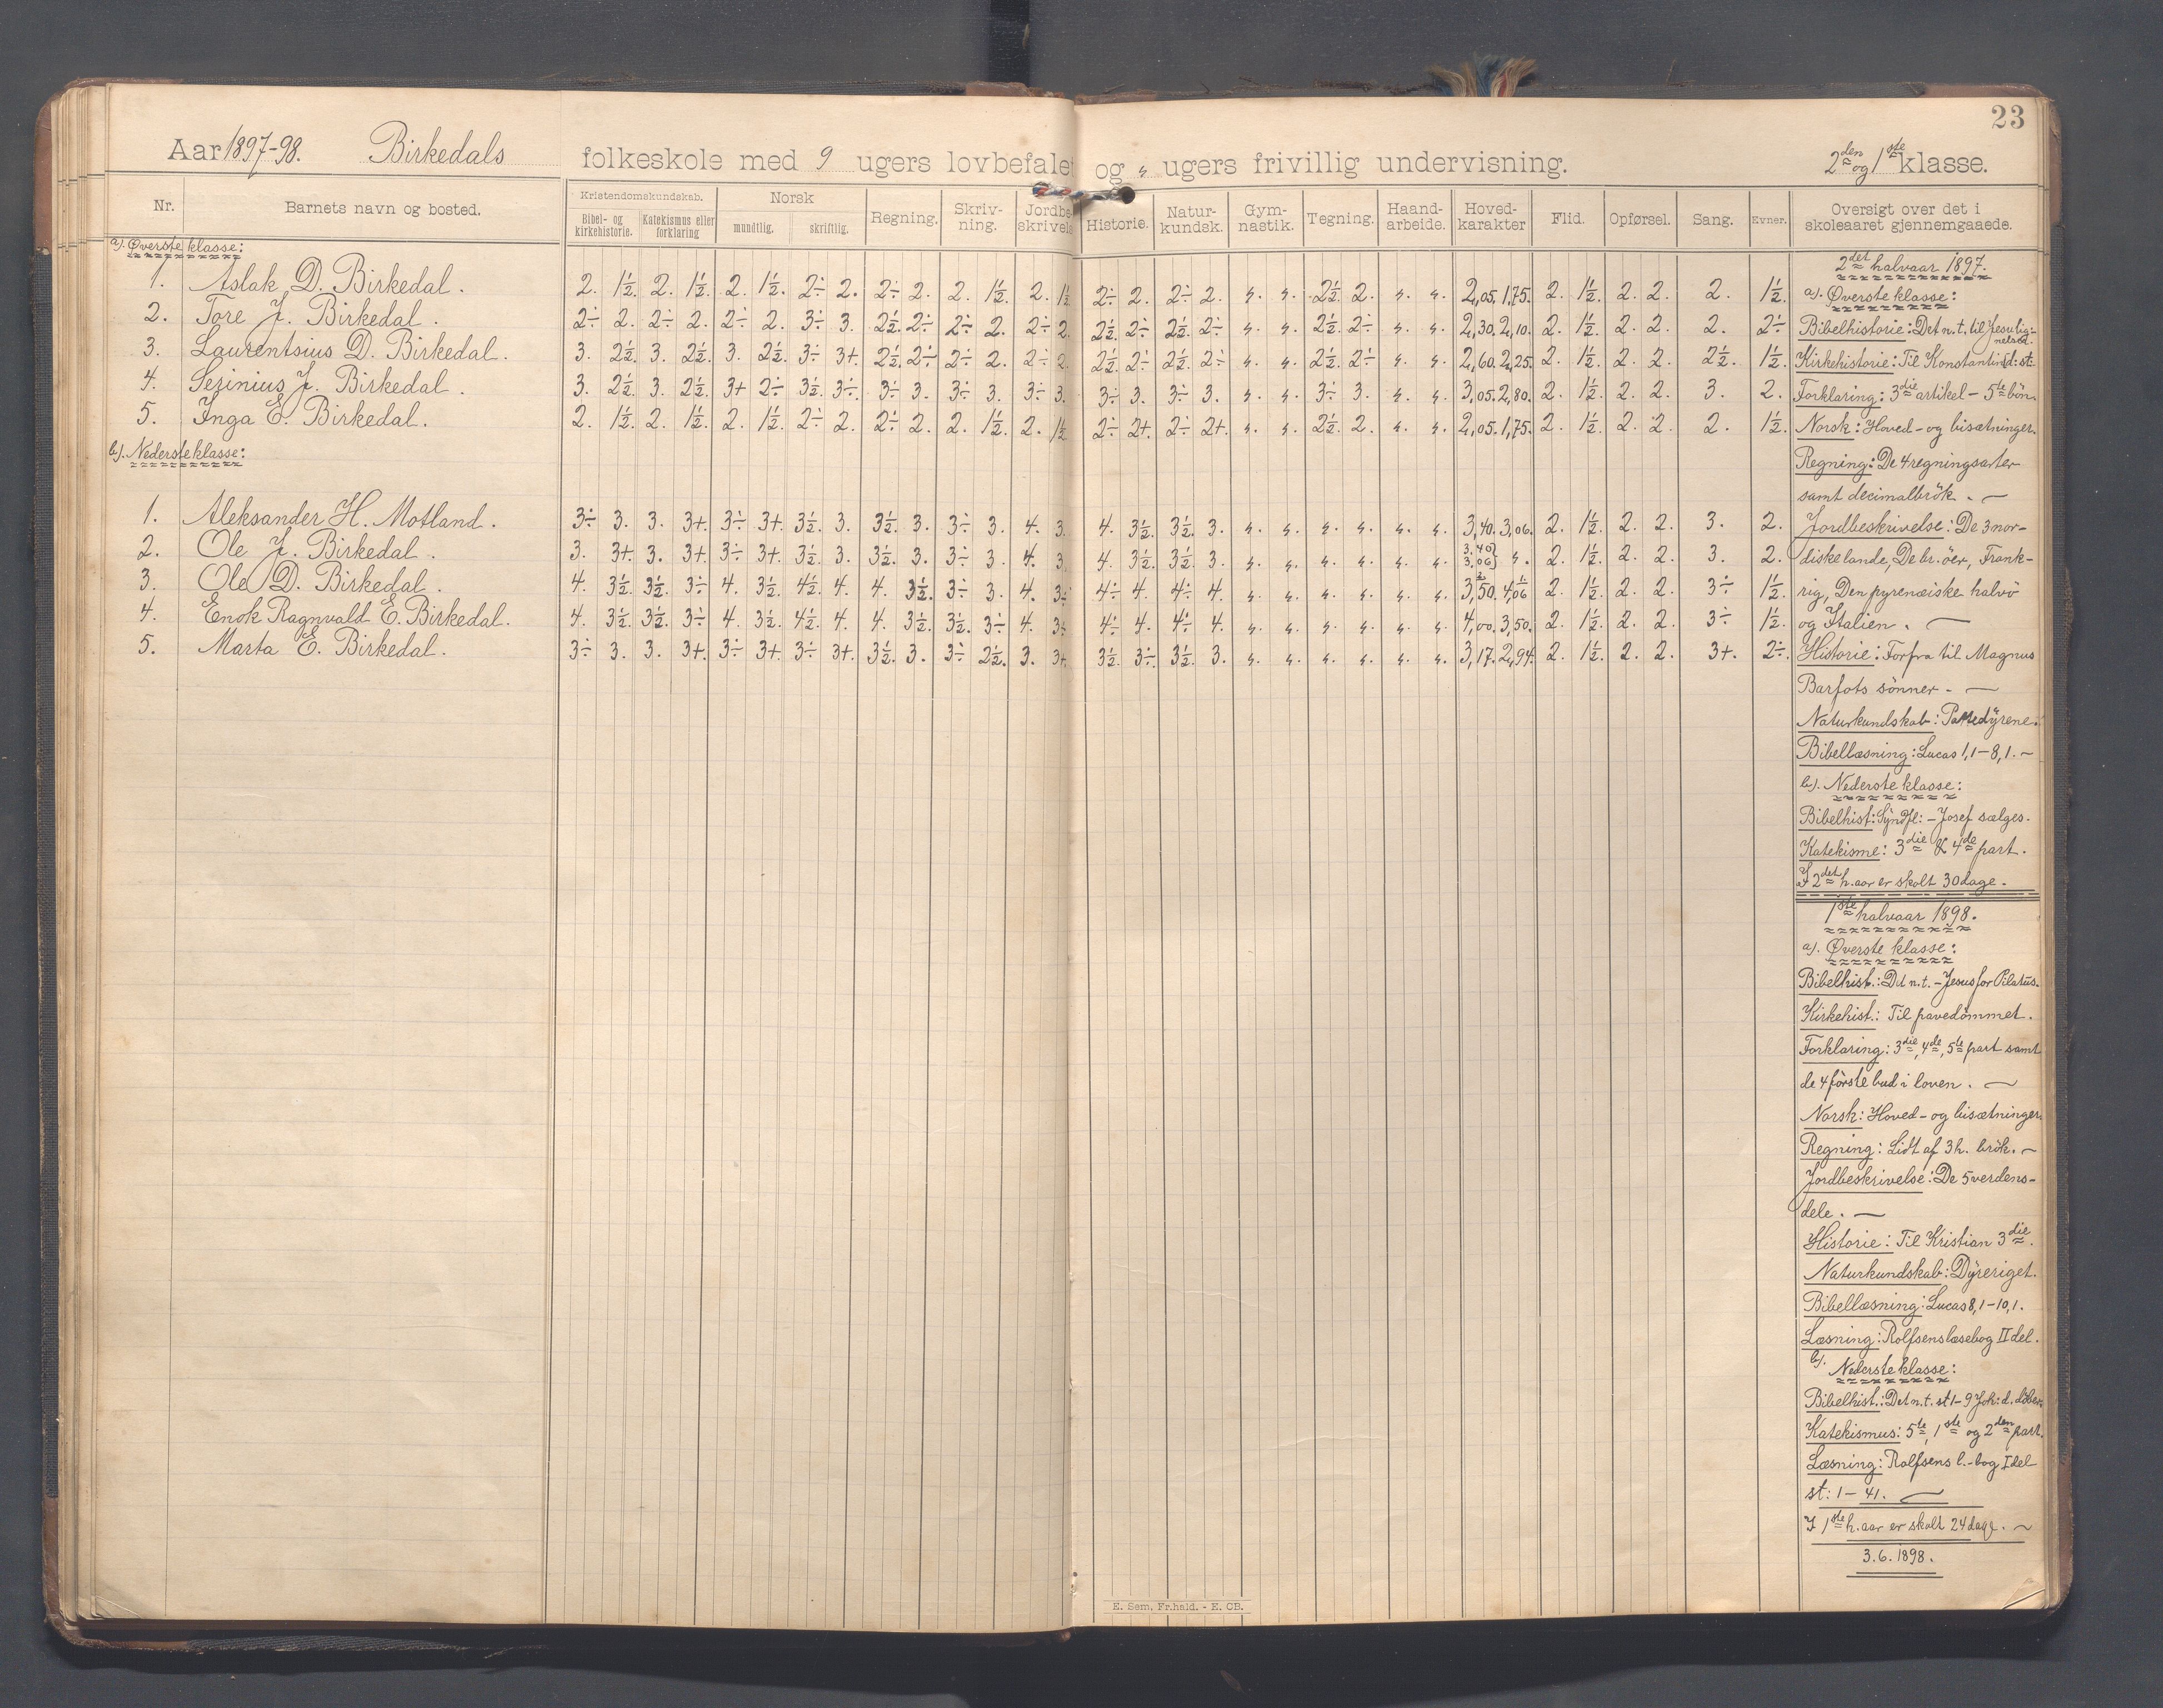 23
Aar 1897-98. Birkedals folkeskole med 9 ugers lovbefalet og " ugers frivillig undervisning. 2den og 1ste klasse.
Nr. Barnets navn og bosted. Kristendomskundskab. Bibel- og kirkehistorie. Katekismus eller forklaring Norsk mundtlig. skriftlig. Regning. Skriv-ning. Jordbe-skrivels Historie. Natur-kundsk. Gym-nastik. Tegning. Haand-arbeide. Hoved-karakter Flid. Opførsel. Sang. Evner. Oversigt over det i skoleaaret gjennemgaaede.
a). Øverste klasse:
1. Aslak D. Birkedal. 2. 1½. 2. 1½. 2. 1½. 2÷ 2. 2÷ 2. 2. 1½. 2. 1½ 2÷ 2. 2÷ 2. " " 2½. 2. " " 2,05. 1,75. 2. 1½. 2. 2. 2. 1½.
2. Tore J. Birkedal. 2÷ 2. 2÷ 2. 2÷ 2. 3÷ 3. 2½. 2÷ 2÷ 2. 2÷ 2. 2½ 2÷ 2½. 2÷ " " 2½. 2÷ " " 2,30. 2,10. 2. 1½. 2. 2. 2. 2÷
3. Laurentsius D. Birkedal. 3. 2½. 3. 2½. 3. 2½. 3÷ 3+ 2½. 2÷ 2÷ 2. 2÷ 2. 2½. 2÷ 2½. 2÷ " " 2½ 2÷ " " 2,60. 2,25. 2. 1½. 2. 2. 2½. 1½.
4. Sesinius J. Birkedal. 3. 2½ 3. 2½. 3+ 2÷ 3½. 3÷ 3÷ 3. 3÷ 3. 3÷ 3. 3÷ 3. 3÷ 3. " " 3÷ 3. " " 3,05. 2,80. 2. 1½. 2. 2. 3. 2.
5. Inga E. Birkedal. 2. 1½. 2. 1½. 2. 1½. 2÷ 2. 2÷ 2. 2. 1½. 2. 1½ 2÷ 2+. 2÷ 2+. " " 2½. 2. " " 2,05. 1,75. 2. 1½. 2. 2. 2. 1½.
b). Nederste klasse:
1. Aleksander H. Motland. 3÷ 3. 3. 3+. 3÷ 3+. 3½. 3. 3½. 3. 3÷ 3. 4. 3. 4. 3½. 3½. 3. " " " " " " 3,40. 3,06. 2. 1½. 2. 2. 3. 2.
2. Ole J. Birkedal. 3. 3+. 3. 3+ 3÷ 3+. 3½. 3. 3½. 3. 3÷ 3. 4. 3. 4. 3½. 3½. 3. " " " " " " 3.40 3,06} ". 2. 1½. 2. 2. 3. 2.
3. Ole D. Birkedal. 4. 3½. 3½. 3÷ 4. 3½. 4½. 4. 4. 3½. 3÷ 3. 4. 3÷ 4÷ 4. 4÷ 4. " " " " " " 3,50. 4,06 2. 1½. 2. 2. 3÷ 1½.
4. Enok Ragnvald E. Birkedal. 4. 3½. 3½. 3÷ 4. 3½. 4½. 4. 4. 3½. 3½. 3÷ 4. 3÷ 4÷ 4. 4÷ 4. " " " " " " 4,00. 3,50. 2. 1½. 2. 2. 3÷ 1½.
5. Marta E. Birkedal. 3÷ 3. 3. 3+. 3÷ 3+. 3÷ 3+. 3½. 3. 3÷ 2½. 3. 3+. 3½ 3÷. 3½. 3. " " " " " " 3,17. 2,94. 2. 1½. 2. 2. 3+. 2÷.
2det halvaar 1897.
a). Øverste klasse:
Bibelhistorie: Det n.t. til Jesu lig-nelser.
Kirkehistorie: Til Konstantin d: st:
Forklaring: 3die artikel - 5te bøn.
Norsk: Hoved- og bisætninger.
Regning: De 4 regningsarter
samt decimalbrök. —
Jordbeskrivelse: De 3 nor-
diske lande, De br. öer, Frank-
rig, Den pyrenæiske halvö
og Italien. —
Historie: Forfra til Magnus
Barfots sönner. —
Naturkundskab: Pattedÿrene.
Bibellæsning: Lucas 1,1-8,1. —
b). Nederste klasse:
Bibelhist: Syndfl: - Josef sælges.
Katekisme: 3die & 4de part.
I 2det h.aar er skolt 30 dage.
1ste halvaar 1898.
a). Øverste klasse:
Bibelhist.: Det n.t. - Jesus for Pilatus.
Kirkehist.: Til pavedömmet.
Forklaring: 3die, 4de, 5te part samt
de 4 förste bud i loven. —
Norsk: Hoved- og bisætninger.
Regning: Lidt af 3 h. brök. —
Jordbeskrivelse: De 5 verdens-
dele. —
Historie: Til Kristian 3die.
Naturkundskab: Dÿreriget.
Bibellæsning: Lucas 8,1-10,1.
Læsning: Rolfsens læsebog II del.
b). Nederste klasse:
Bibelhist.: Det n.t. st 1-9 Joh: d. döber.
Katekismus: 5te, 1ste og 2den part.
Læsning: Rolfsens l.-bog I del
st: 1 - 41. —
I 1ste h.aar er skolt 24 dage. —
3.6.1898.
E. Sem, Fr.hald. - E. CB.